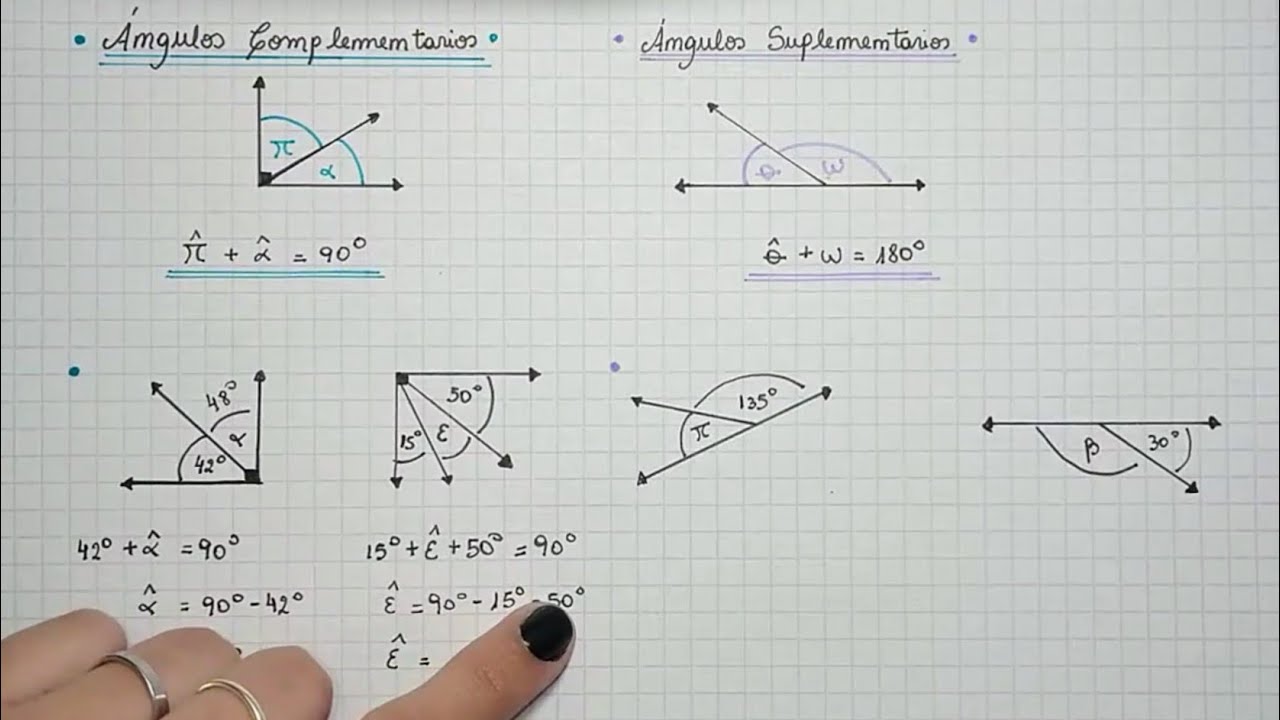 • Ángulos Complementarios •
π
α
π̂ + α̂ = 90°
• Ángulos Suplementarios •
θ
ω
θ̂ + ω = 180°
48°
α
42°
50°
15°
ε
135°
π
β
30°
42° + α̂ = 90°
α̂ = 90° - 42°
15° + ε̂ + 50° = 90°
ε̂ = 90° - 15° - 50°
ε̂ =